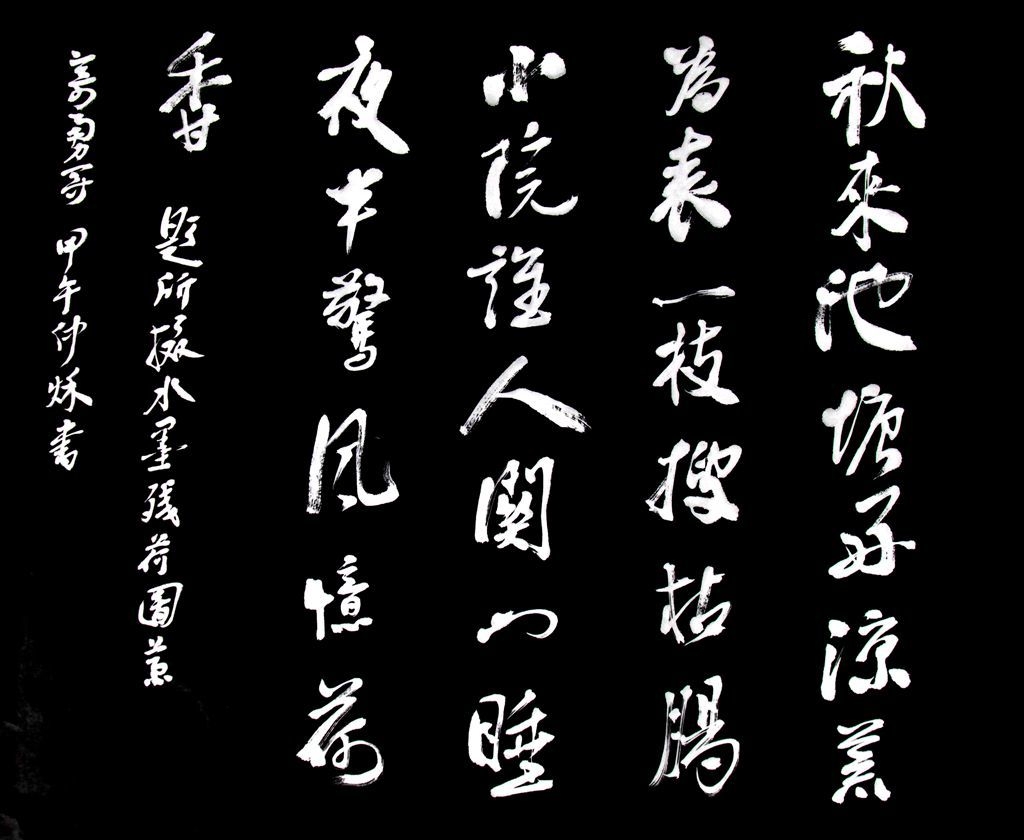 秋來池塘好涼荒
為表一枝搜枯腸
小院誰人關門睡
夜半驚風憶荷
香 題所攝水墨殘荷圖兼
寄勇哥 甲午仲秋書